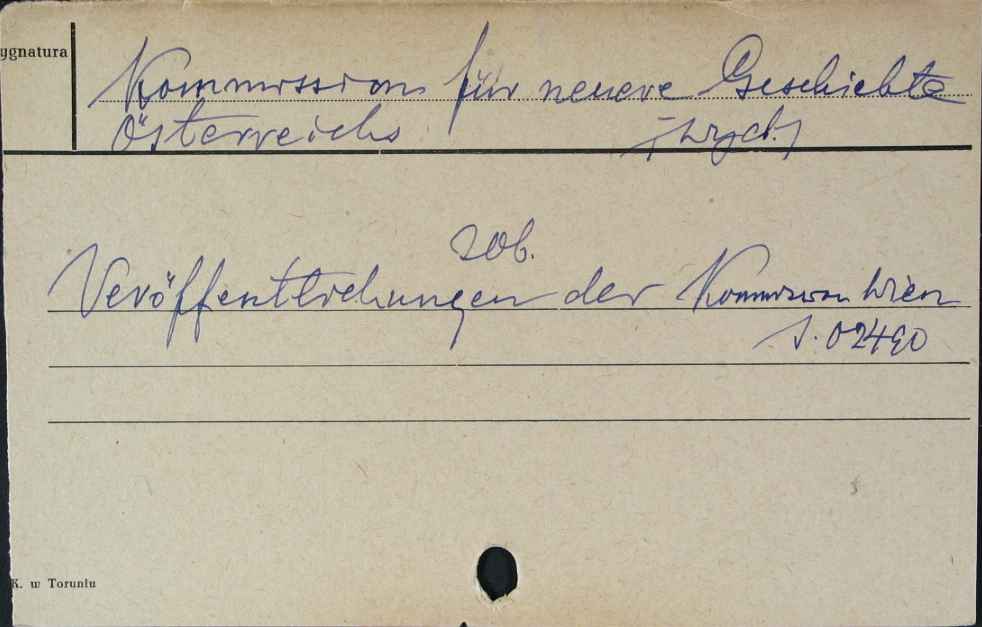 ygnatura
Kommission für neuere Geschichte
Österreichs /wyd./
zob.
Veröffentlichungen der Kommission Wien
S. 02490
K. w Toruniu